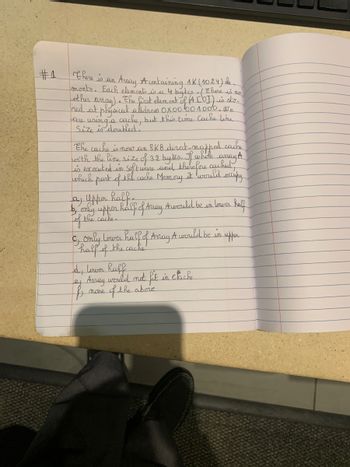 #1 There is an Array A containing 1K (1024) ele-
ments. Each element is a 4 bytes. (There is no
other array). The first element of (A[0]) is sto-
red at physical address 0x0000 1000. We
are using a cache, but this time cache line
Size is doubled.
The cache is now an 8KB direct-mapped cache
with the line size of 32 bytes. If whole array A
is accessed in software and therefore cached,
which part of the cache Memory it would occupy
a, Upper half.
b, only upper half of Array A would be in lower half
of the cache.
c, only Lower half of Array A would be in upper
half of the cache
d, lower half
e, Array would not fit in cache
f, none of the above